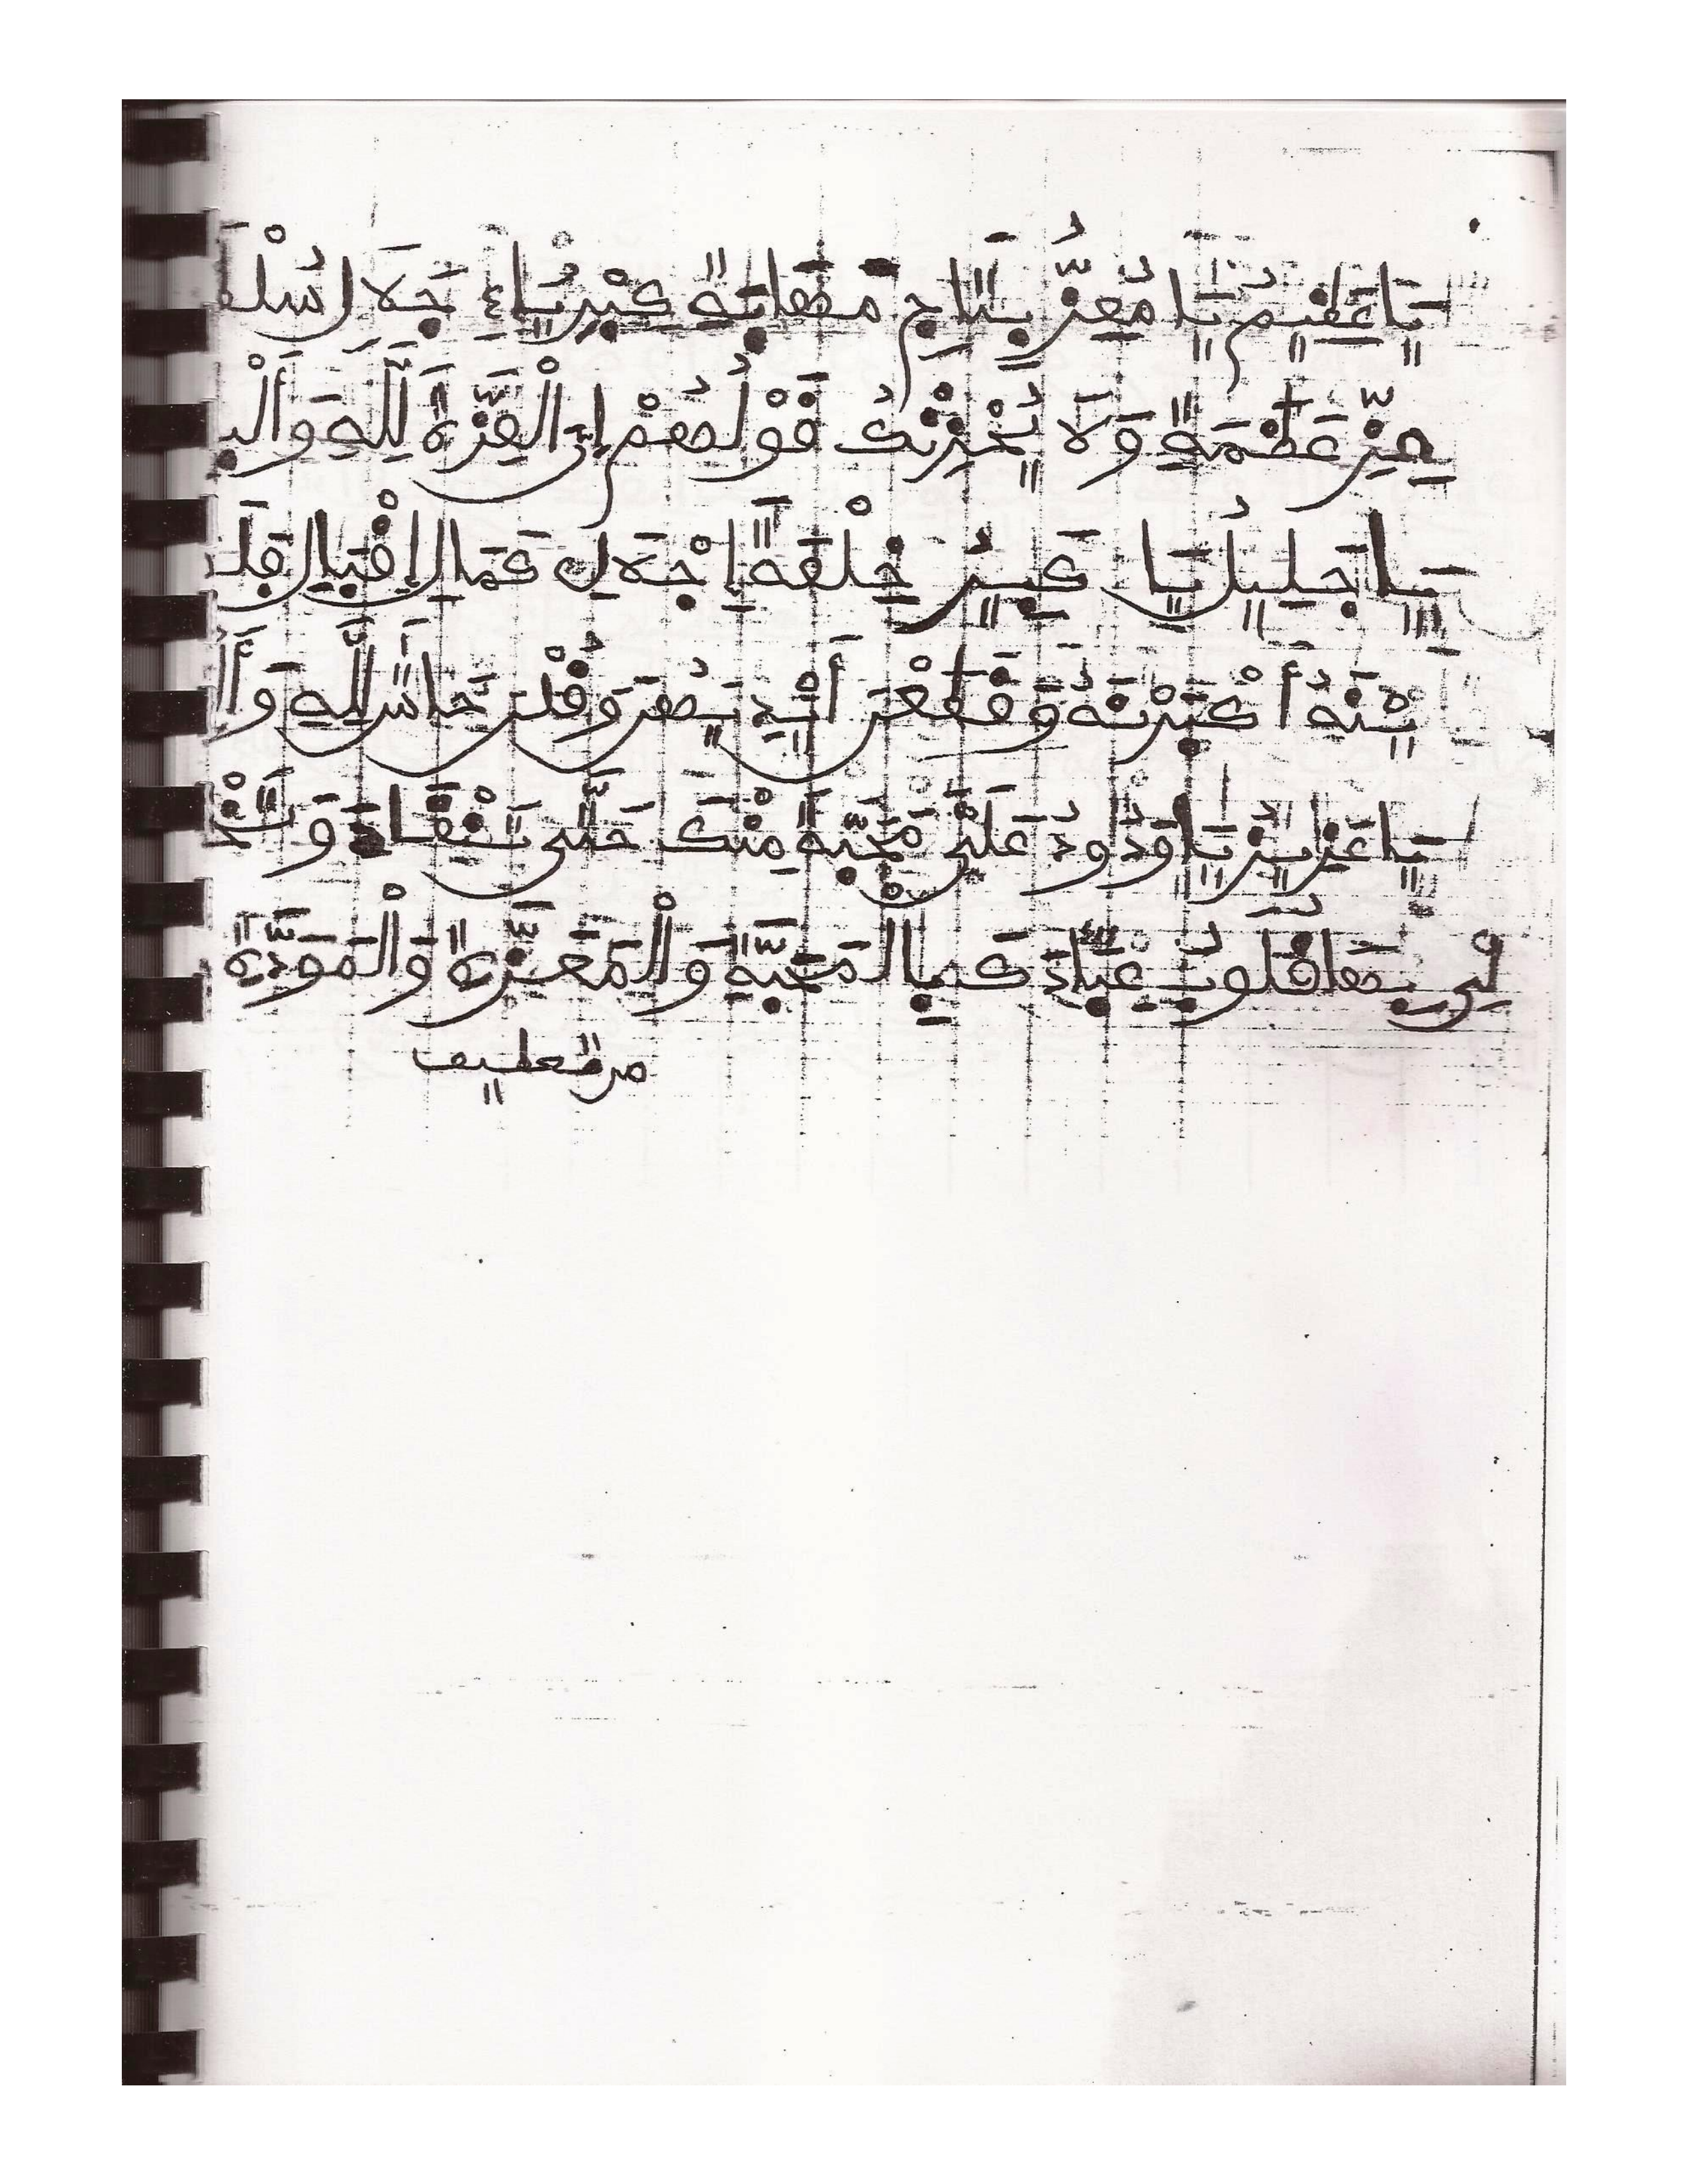 يَا عَظِيمُ يَا مُعِزُّ بِتَاجِ مَهَابَةِ كِبْرِيَاءِ جَلَالِ سُلْطَ
عِزِّ عَظَمَةِ وَلَا يُحْزِنْكَ قَوْلُهُمْ إِنَّ الْعِزَّةَ لِلَّهِ وَأَلْبِ
يَا جَلِيلُ يَا كَبِيرُ خِلْعَةَ إِجْلَالِ كَمَالِ إِقْبَالِ فَلَ
يْنَهُ أَكْبَرْنَهُ وَقَطَعْنَ أَيْدِيَهُنَّ وَقُلْنَ حَاشَ لِلَّهِ وَأَ
يَا عَزِيزُ يَا وَدُودُ عَلَيَّ مَحَبَّةً مِنْكَ حَتَّى تَنْقَادَ وَتَخْ
لِي بِهَا قُلُوبُ عِبَادِكَ بِالْمَحَبَّةِ وَالْمَعَزَّةِ وَالْمَوَدَّةِ